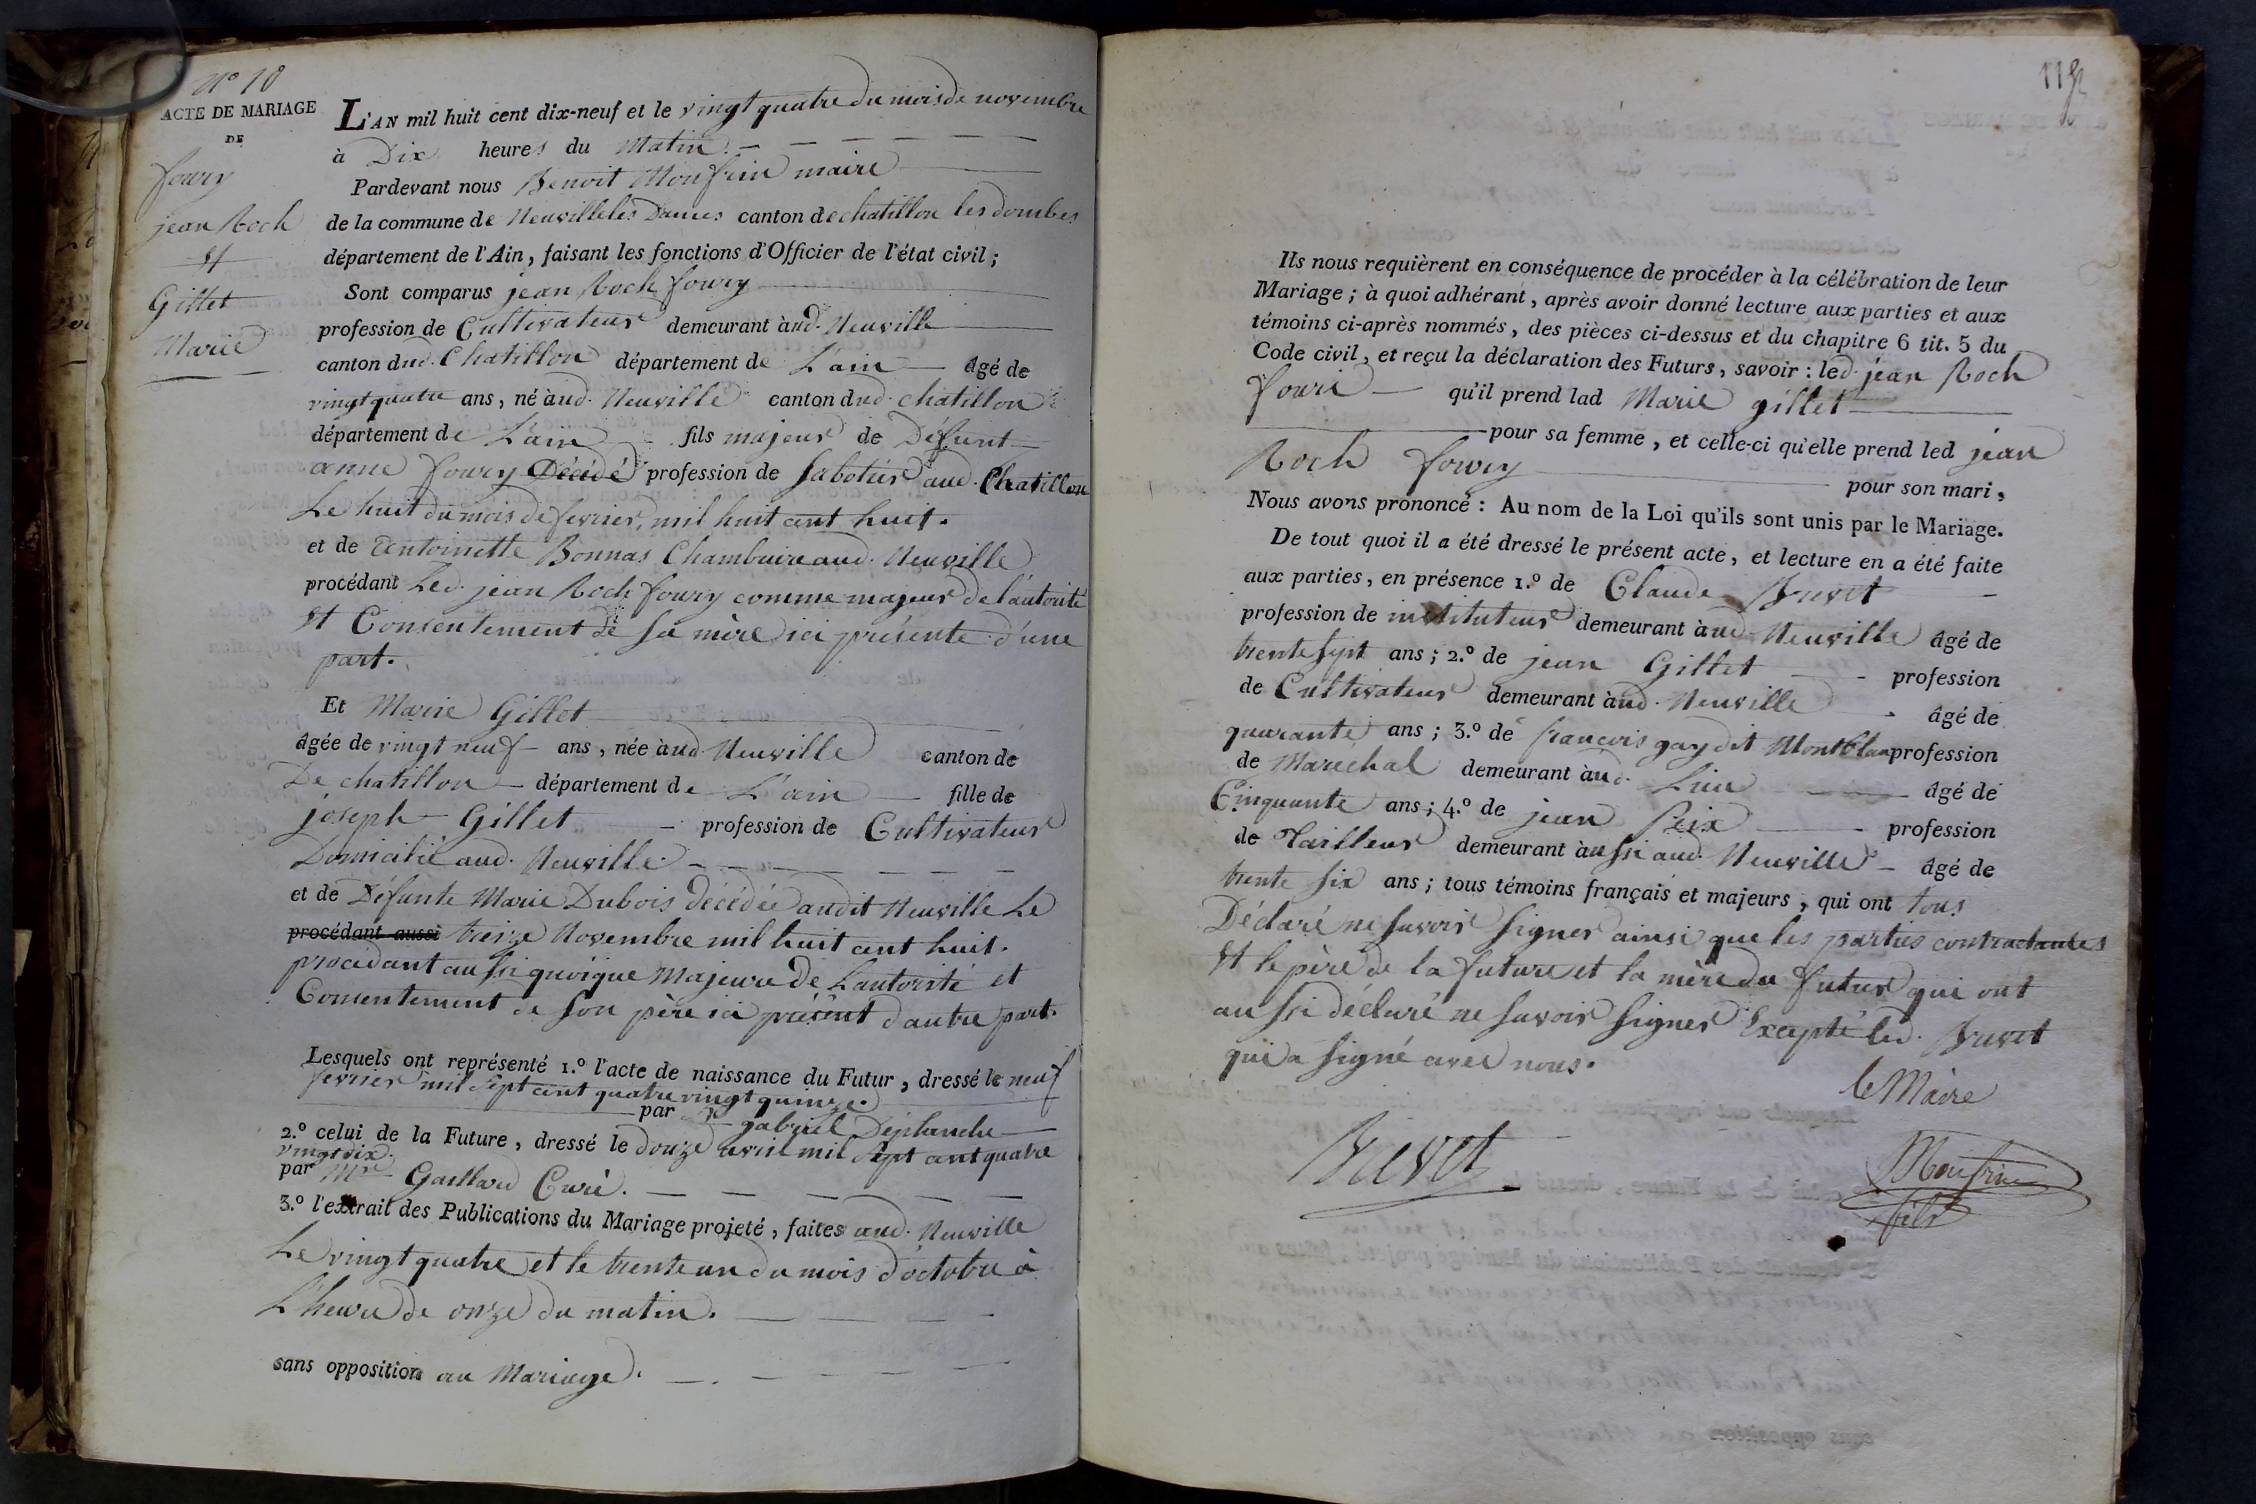 N° 18
ACTE DE MARIAGE
DE
foury
jean Roch
Et
Gillet
Marie
L'AN mil huit cent dix-neuf et le vingt quatre du mois de novembre
à Dix heures du Matin.
Pardevant nous Benoit Monfrin maire
de la commune de Neuville les Dames canton de chatillon les dombes
département de l'Ain, faisant les fonctions d'Officier de l'état civil;
Sont comparus jean Roch foury
profession de Cultivateur demeurant à aud. Neuville
canton dud. Chatillon département de L'ain âgé de
vingt quatre ans, né à aud. Neuville canton dud. chatillon
département de L'ain fils majeur de Defunt
anne foury Décédé profession de Sabotier aud. Chatillon
Le huit du mois de fevrier, mil huit cent huit.
et de Antoinette Bonnas Chambriere aud. Neuville
procédant Led. jean Roch foury comme majeur de l'autorité
Et Consentement de sa mère ici présente d'une
part.
Et Marie Gillet
âgée de vingt neuf ans, née à aud Neuville canton de
De chatillon département de L'ain fille de
joseph Gillet profession de Cultivateur
Domicilié aud. Neuville.
et de Défunte Marie Dubois décédée audit Neuville Le
procédant aussi treize Novembre mil huit cent huit.
procedant aussi quoique Majeure de L'autorité et
Consentement de son père ici présent d'autre part.
Lesquels ont représenté 1.º l'acte de naissance du Futur, dressé le neuf
fevrier mil sept cent quatre vingt quinze.
par gabriel Deplanche
2.º celui de la Future, dressé le douze avril mil sept cent quatre
vingt dix.
par Mr Gaillard Curé.
3.º l'extrait des Publications du Mariage projeté, faites aud. Neuville
Le vingt quatre et le trente un du mois d'octobre à
L'heure de onze du matin.
sans opposition au Mariage.
Ils nous requièrent en conséquence de procéder à la célébration de leur
Mariage; à quoi adhérant, après avoir donné lecture aux parties et aux
témoins ci-après nommés, des pièces ci-dessus et du chapitre 6 tit. 5 du
Code civil, et reçu la déclaration des Futurs, savoir: led. jean Roch
fouri qu'il prend lad Marie gillet
pour sa femme, et celle-ci qu'elle prend led jean
Roch foury pour son mari,
Nous avons prononcé: Au nom de la Loi qu'ils sont unis par le Mariage.
De tout quoi il a été dressé le présent acte, et lecture en a été faite
aux parties, en présence 1.º de Claude Buvet
profession de instituteur demeurant à aud. Neuville âgé de
trente sept ans; 2.º de jean Gillet profession
de Cultivateur demeurant à aud. Neuville âgé de
quarante ans; 3.º de francois gay dit Montblan profession
de Maréchal demeurant à aud. Lieu âgé de
Cinquante ans; 4.º de jean Peix profession
de Tailleur demeurant à aussi aud. Neuville âgé de
trente six ans; tous témoins français et majeurs, qui ont tous
Déclaré ne savoir signer ainsi que les parties contractantes
Et le père de la future et la mère du futur qui ont
aussi déclaré ne savoir signer Excepté led. Buvet
qui a signé avec nous.
le Maire
Buvet
Monfrin
fils